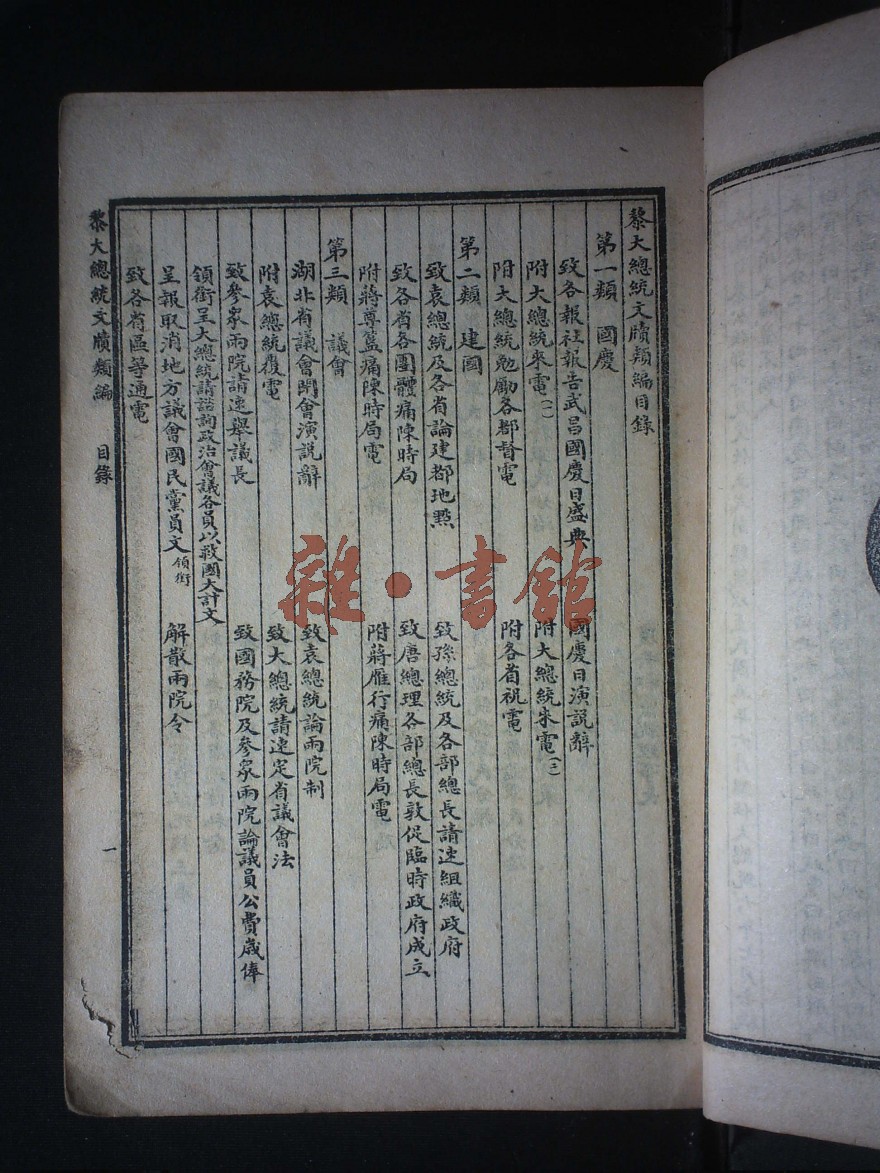 黎大總統文牘類編目錄
第一類 國慶
致各報社報告武昌國慶日盛典 國慶日演說辭
附大總統來電(一) 附大總統來電(二)
附大總統勉勵各都督電 附各省祝電
第二類 建國
致袁總統及各省論建都地點 致孫總統及各部總長請速組織政府
致各省各團體痛陳時局 致唐總理各部總長敦促臨時政府成立
附蔣尊簋痛陳時局電 附蔣雁行痛陳時局電
第三類 議會
湖北省議會開會演說辭 致袁總統論兩院制
附袁總統覆電 致大總統請速定省議會法
致參眾兩院請速舉議長 致國務院及參眾兩院論議員公費歲俸
領銜呈大總統請諮詢政治會議各員以救國大計文
呈報取消地方議會國民黨員文 領銜 解散兩院令
致各省區等通電
黎大總統文牘類編 目錄 一
雜·書館